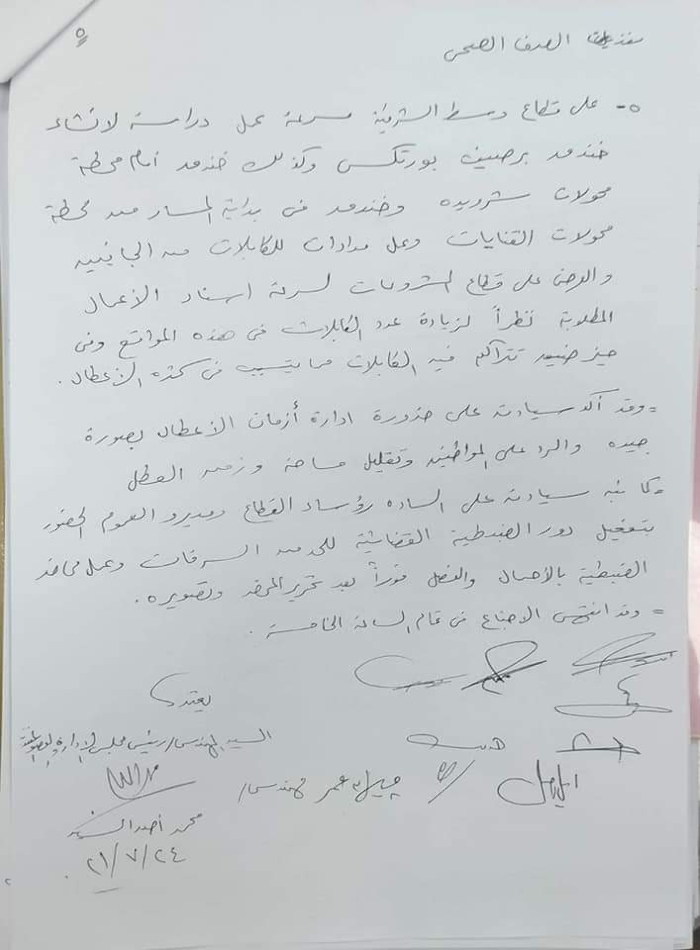 ٥
الصحى
٥- على قطاع وسط الشرقية سرعة عمل دراسة لانشاء
خندق برصيف بورتكس وكذلك خندق أمام محطة
محولات شرويده وخندق فى بداية المسار من محطة
محولات القنايات وعمل مدادات للكابلات من الجانبين
والعرض على قطاع المشروعات لسرعة اسناد الأعمال
المطلوبة نظراً لزيادة عدد الكابلات فى هذه المواقع وفى
حيز ضيق تتراكم فيه الكابلات مما يتسبب فى كثرة الأعطال .
= وقد أكد سيادته على ضرورة ادارة أزمان الأعطال بصورة
جيده والرد على المواطنين وتقليل مساحة وزمن العطل
= كما نبه سيادته على الساده رؤساء القطاع ومديرو العموم الحضور
بتفعيل دور الضبطية القضائية للحد من السرقات وعمل محاضر
الضبطية بالأحمال والفصل فوراً بعد تحرير المحضر وتصويره .
= وقد انتهى الاجتماع فى تمام الساعة الخامسة .
يعتمد
السيد المهندس / رئيس مجلس الإدارة والعضو المنتدب
عمر مهندس /
محمد أحمد السيد
٢١/٧/٢٤